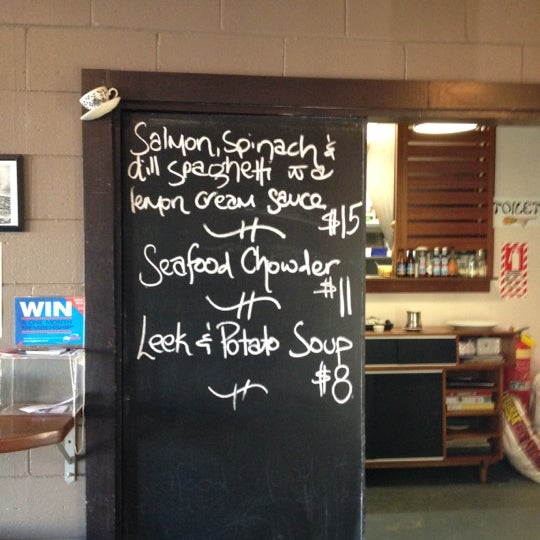 Salmon, Spinach &
dill Spaghetti w a
lemon cream sauce
$15
Seafood Chowder
$11
Leek & Potato Soup
$8
WIN
A ONE MONTH
MEMBERSHIP
TOILET